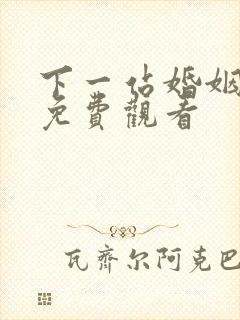 下一站婚姻
免費觀看
瓦齊尔阿克巴